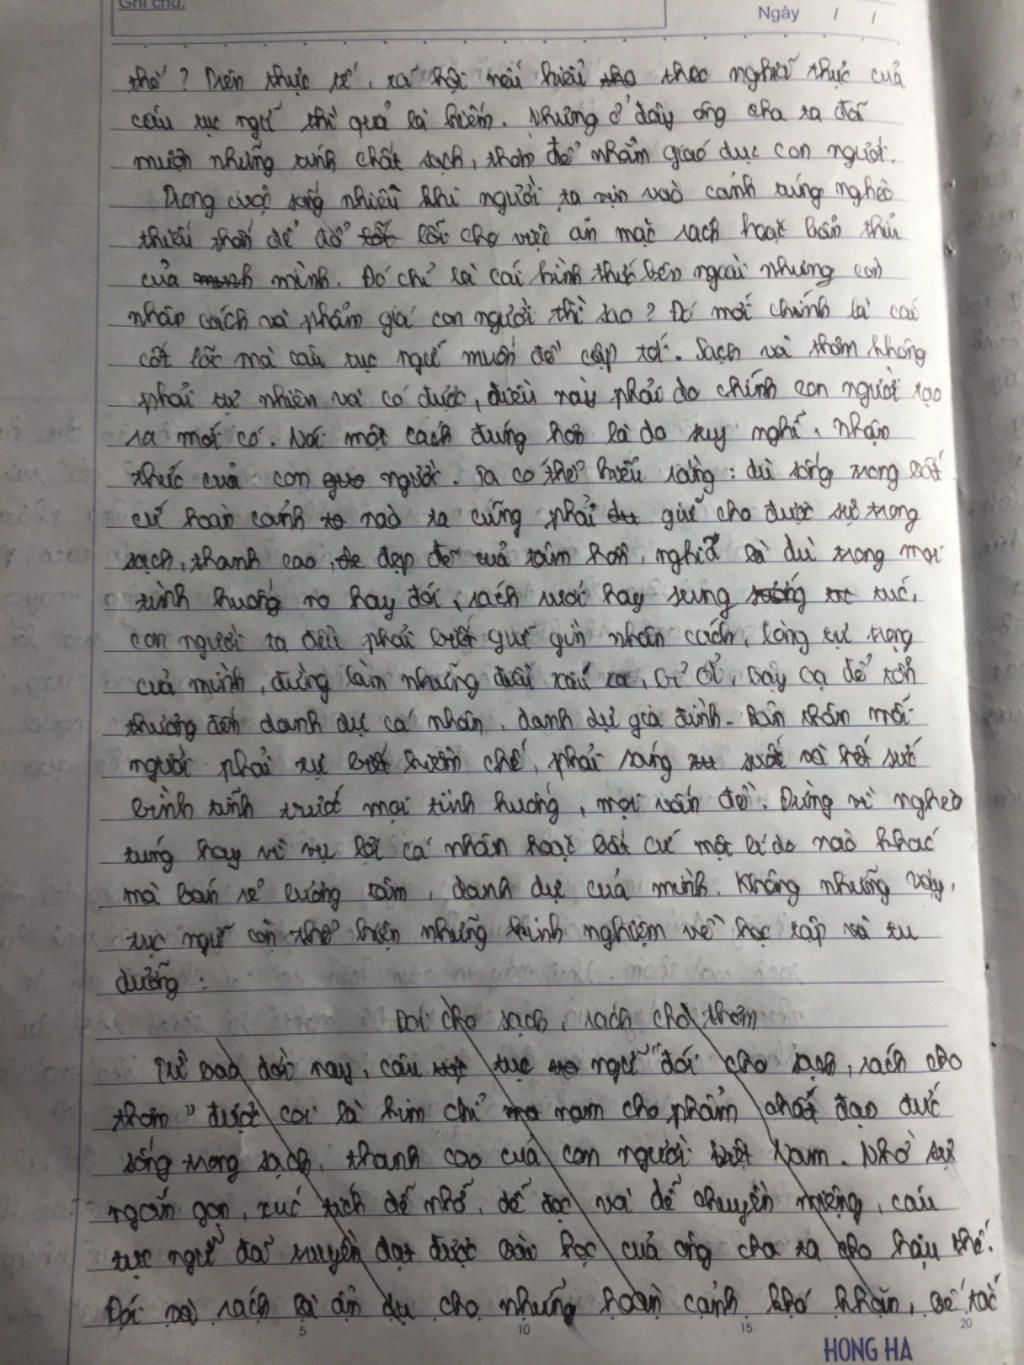 Ghi chú:
Ngày / /
thế? Trên thực tế, xã hội nếu hiểu theo nghĩa thực của
câu tục ngữ thì quả là hiếm. Nhưng ở đây ông cha ta đã
mượn những tính chất sạch, thơm để nhằm giáo dục con người.
Trong cuộc sống nhiều khi người ta vin vào cảnh túng nghèo
thiếu thốn để đổ lỗi cho việc ăn mặc rách hoặc bẩn thỉu
của mình. Đó chỉ là cái hình thức bên ngoài nhưng còn
nhân cách và phẩm giá con người thì sao? Đó mới chính là cái
cốt lõi mà câu tục ngữ muốn đề cập tới. Sạch và thơm không
phải tự nhiên và có được, điều này phải do chính con người tạo
ra mới có. Nói một cách đúng hơn là do suy nghĩ, nhận
thức của con người. Ta có thể hiểu rằng: dù sống trong bất
cứ hoàn cảnh nào ta cũng phải giữ cho được sự trong
sạch, thanh cao, đẹp đẽ của tâm hồn, nghĩa là dù trong mọi
tình huống no hay đói, rách rưới hay sung túc,
con người ta đều phải biết giữ gìn nhân cách, lòng tự trọng
của mình, đừng làm những điều xấu xa, bậy bạ để tổn
thương đến danh dự cá nhân, danh dự gia đình. Bản thân mỗi
người phải tự biết kiềm chế, phải sáng suốt và hết sức
bình tĩnh trước mọi tình huống, mọi vấn đề. Đừng vì nghèo
túng hay vì vụ lợi cá nhân hoặc bất cứ một lí do nào khác
mà bán rẻ lương tâm, danh dự của mình. Không những vậy,
tục ngữ còn thể hiện những kinh nghiệm về học tập và tu
dưỡng:
Đói cho sạch, rách cho thơm
Từ bao đời nay, câu tục ngữ "đói cho sạch, rách cho
thơm" được coi là kim chỉ nam cho phẩm chất đạo đức
sống trong sạch, thanh cao của con người Việt Nam. Nhờ sự
ngắn gọn, xúc tích dễ nhớ, dễ đọc và dễ chuyền miệng, câu
tục ngữ đã truyền đạt được bài học của ông cha ta cho hậu thế.
Đói và rách là ẩn dụ cho những hoàn cảnh khó khăn, bế tắc
5 10 15 20
HONG HA